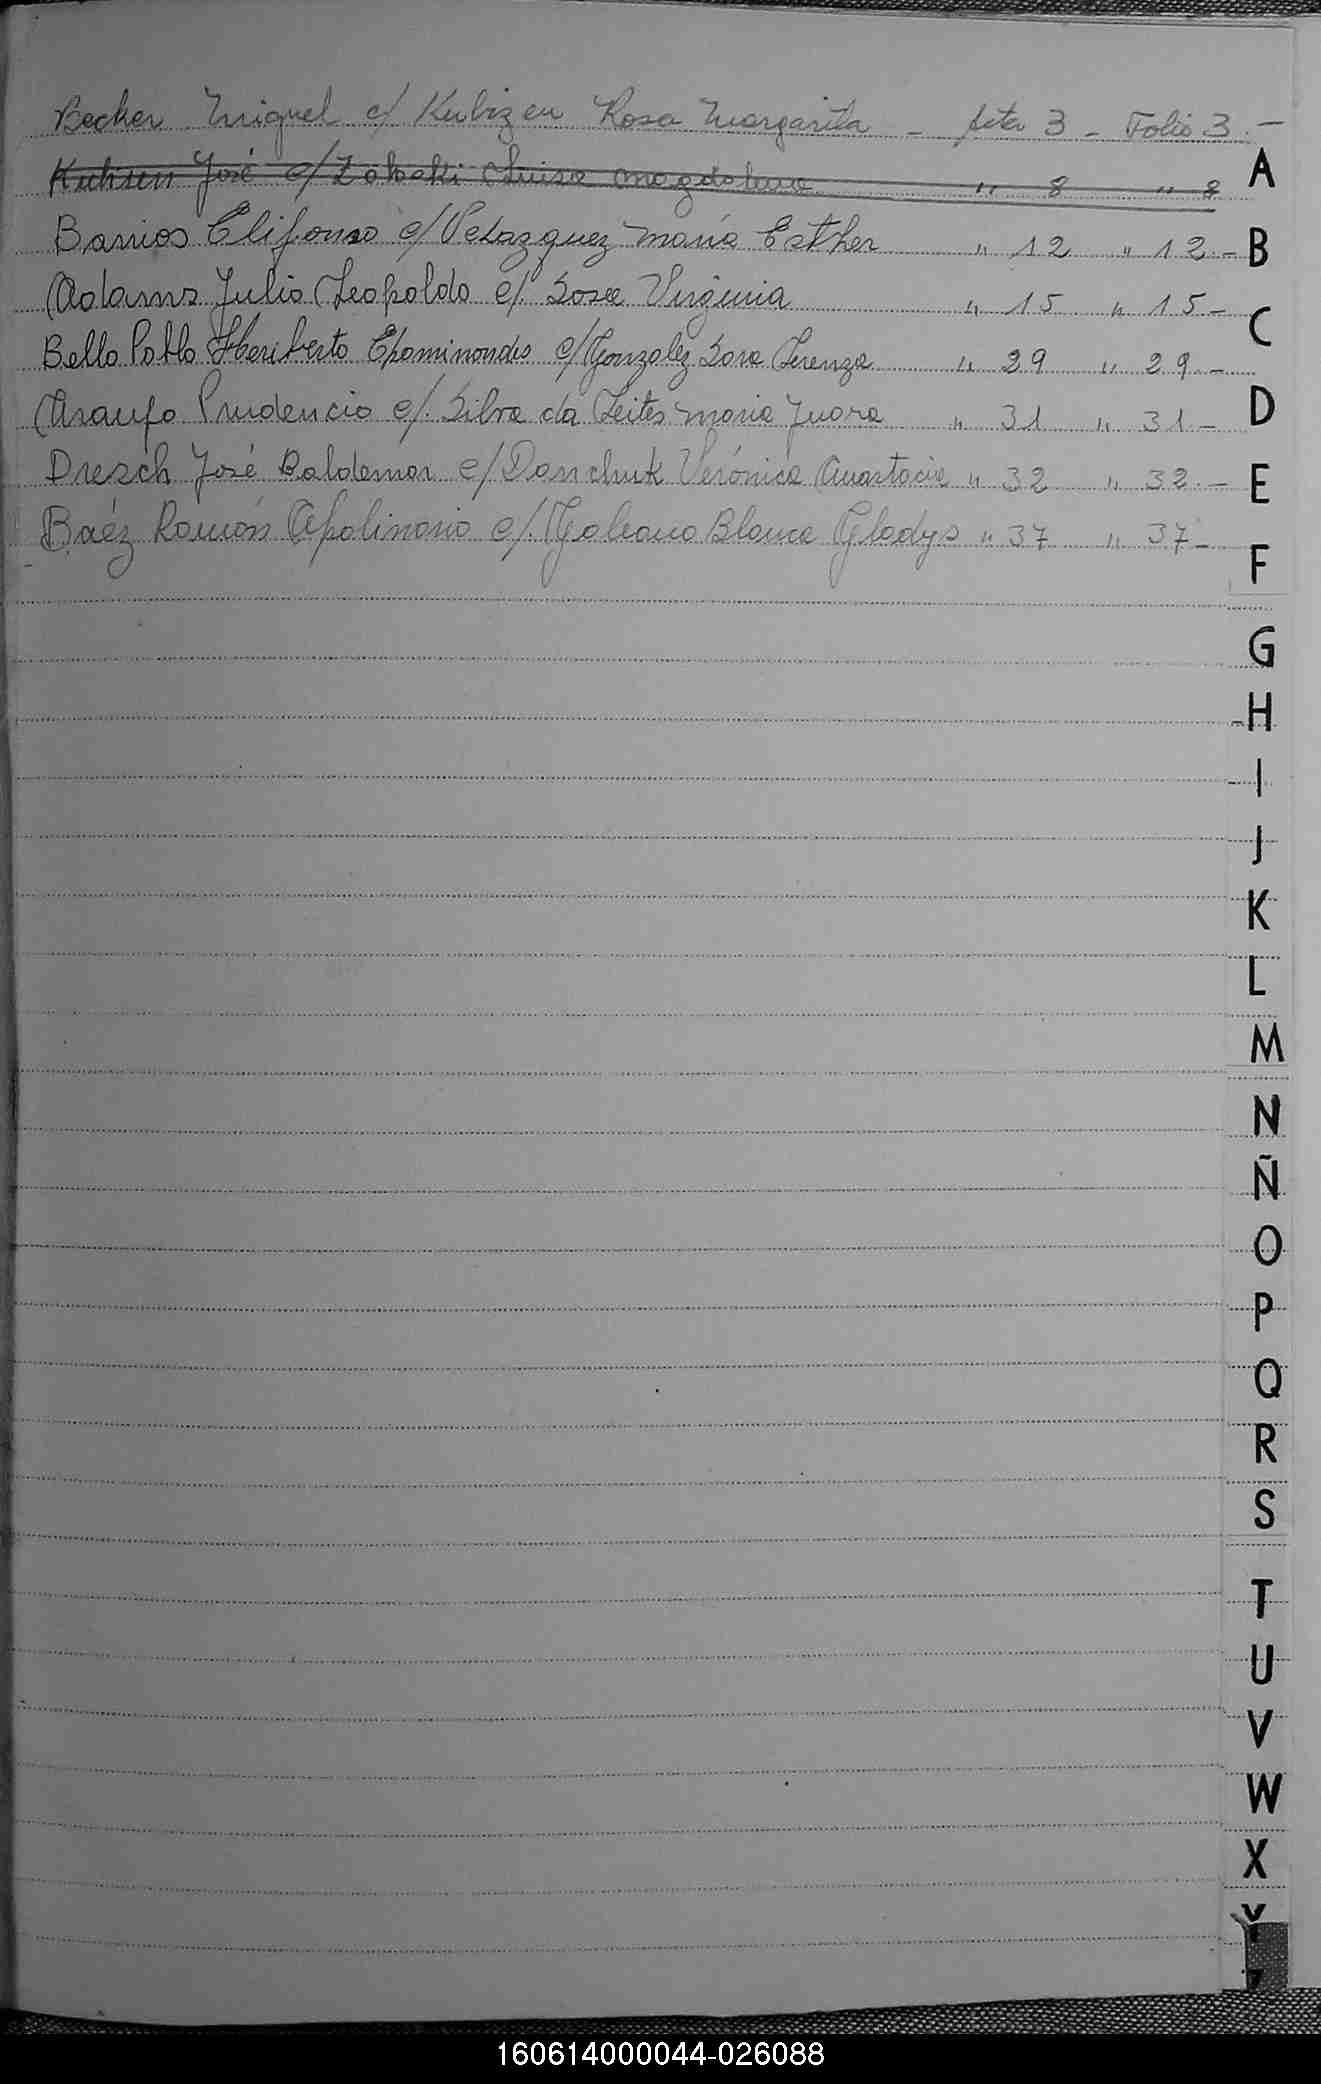 Becker Miguel c/ Kubizen Rosa Margarita - Acta 3 - Folio 3.-
Kuhsen José c/ Zabaski Luisa Magdalena " 8 " 8
Barrios Elifonso c/ Velazquez María Esther " 12 " 12.-
Adams Julio Leopoldo c/ Sosa Virginia " 15 " 15-
Bello Pablo Heriberto Epaminondis c/ Gonzalez Sara Lerenza " 29 " 29-
Araujo Prudencio c/. Silva da Leites Maria Juara " 31 " 31-
Dresch José Baldomar c/ Danchuk Verónica Anastacia " 32 " 32.-
Baéz Ramón Apolinario c/. Galeano Blanca Gladys " 37 " 37-
A
B
C
D
E
F
G
H
I
J
K
L
M
N
Ñ
O
P
Q
R
S
T
U
V
W
X
Y
160614000044-026088